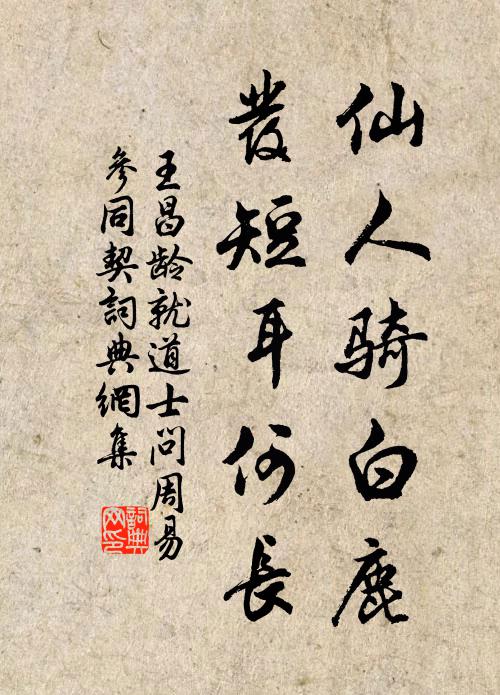 仙人骑白鹿
发短耳何長
王昌龄就道士问周易
參同契詞典網集
詞典网印